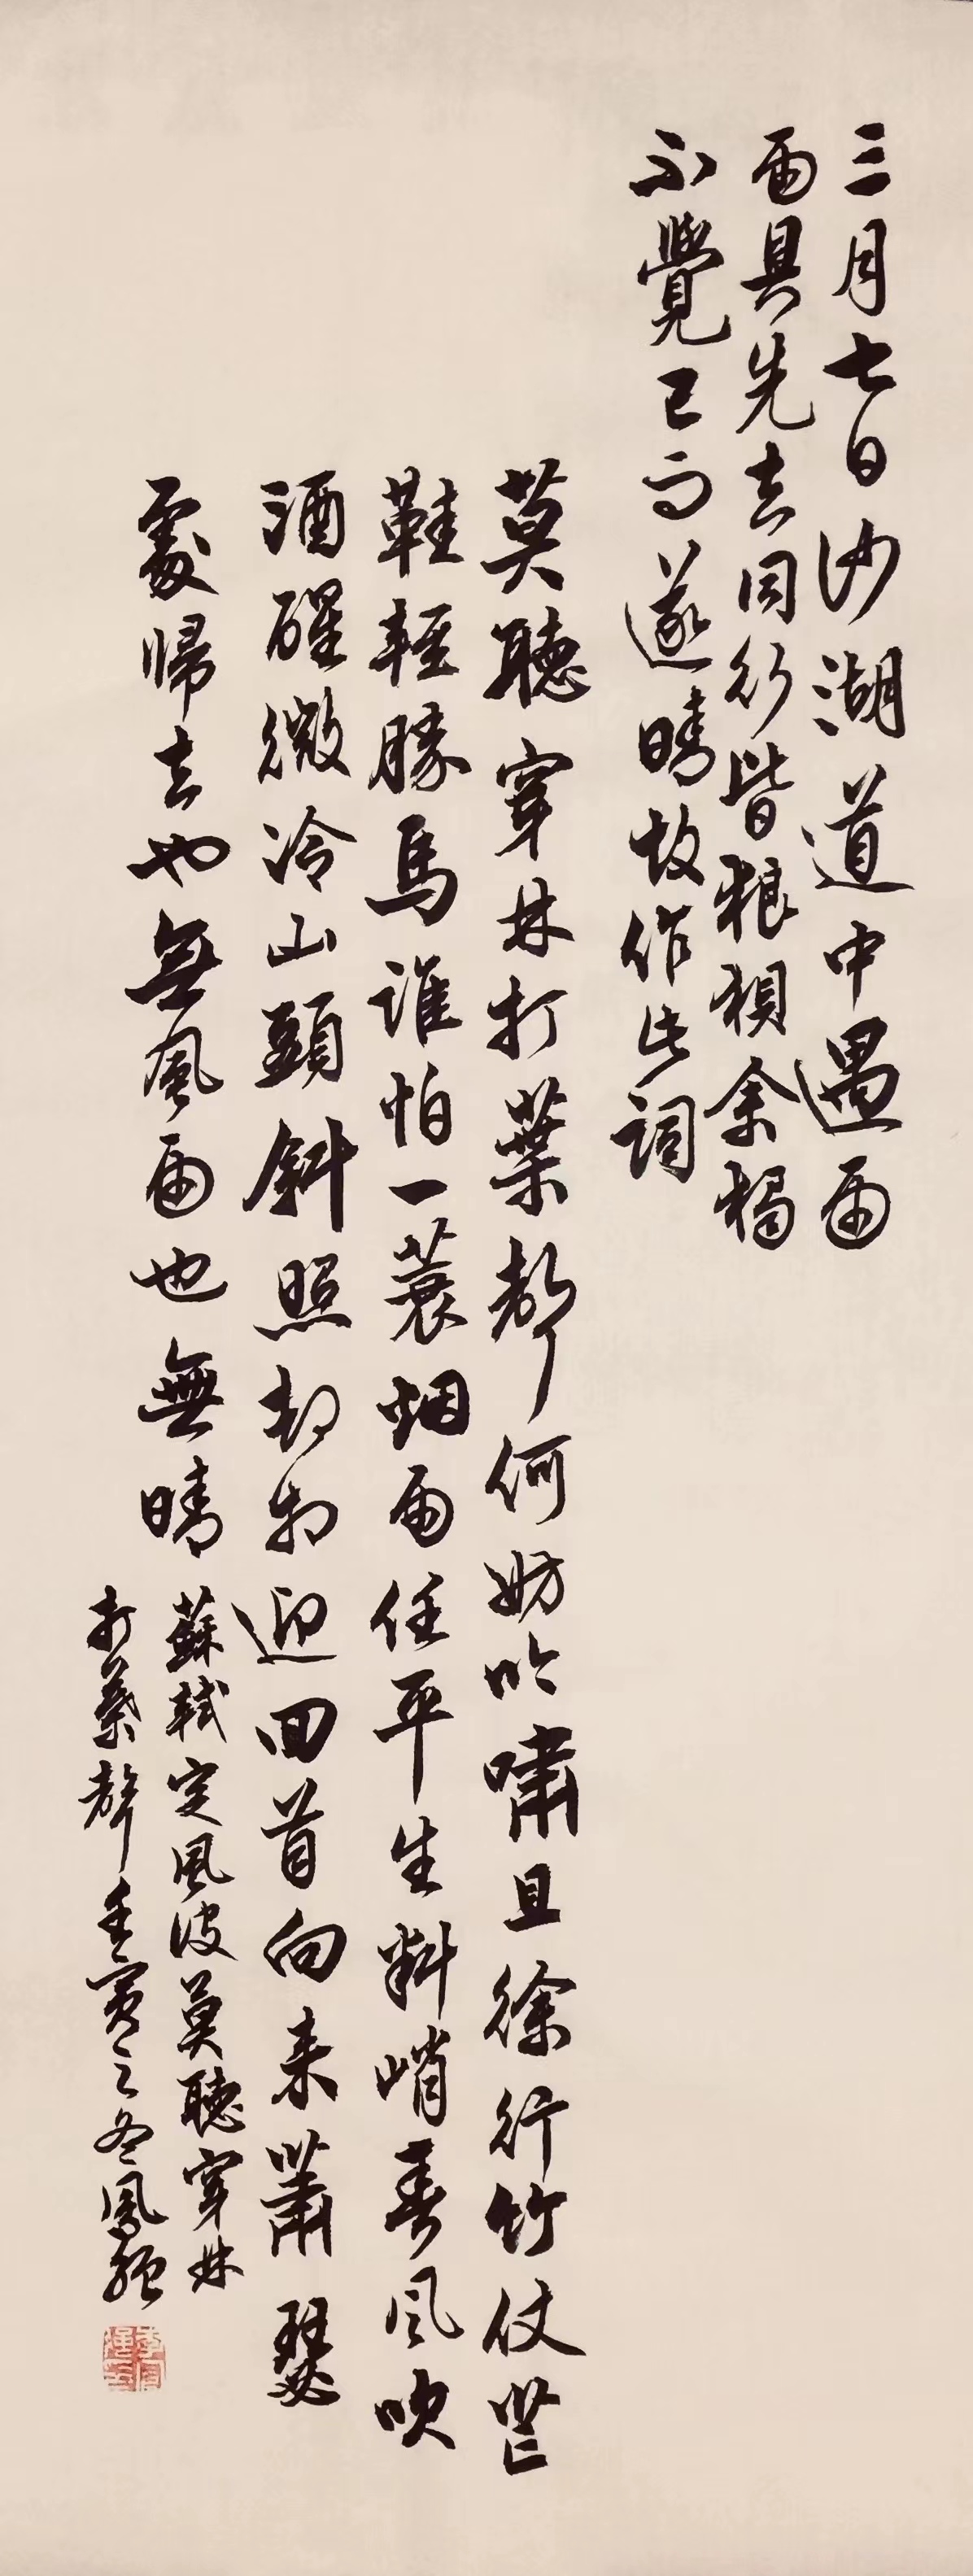 三月七日沙湖道中遇雨
雨具先去同行皆狼狽余獨
不覺已而遂晴故作此詞
莫聽穿林打葉聲何妨吟嘯且徐行竹仗芒
鞋輕勝馬誰怕一蓑烟雨任平生料峭春風吹
酒醒微冷山頭斜照却相迎回首向来蕭瑟
處歸去也無風雨也無晴
蘇軾定風波莫聽穿林
打葉聲壬寅之冬鳳強